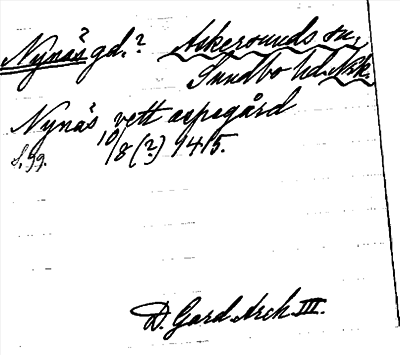 Nynäs gd.? Askersunds sn,
Sundbo hd. Nrk.
Nynäs vett aspegård
S. 99. 10/8 (?) 1415.
D. Gard. Arch III.